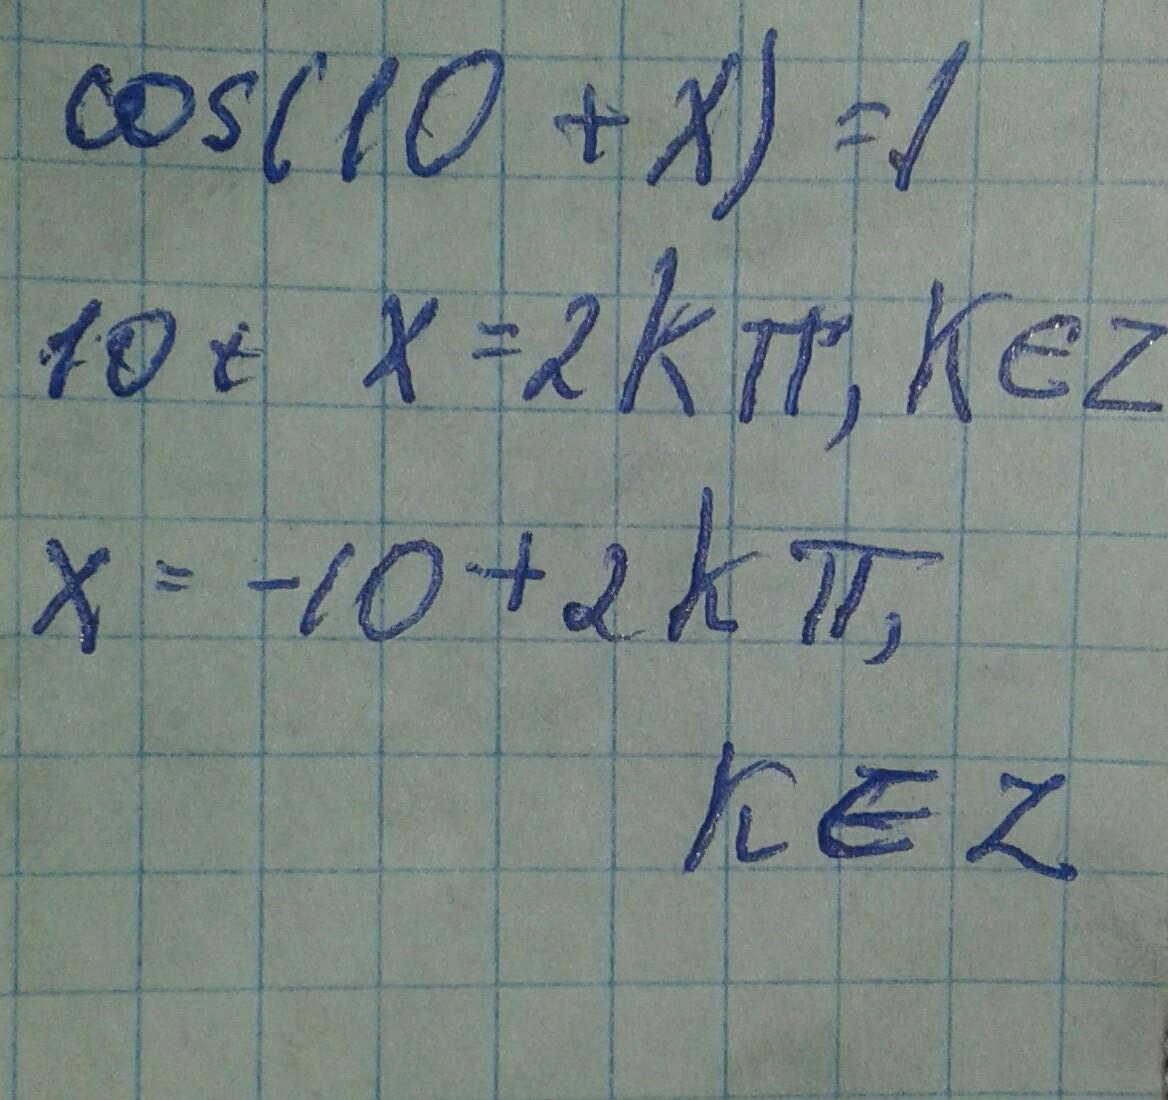 cos(10 + x) = 1
10 + x = 2kπ, k ∈ Z
x = -10 + 2kπ,
k ∈ Z